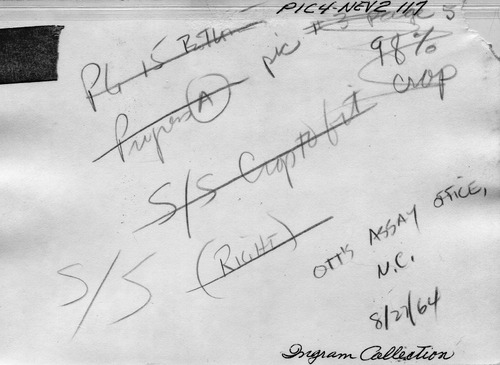 PIC4-NEV2 117
PG 15 BTM
pic #3 page 5
98%
crop
A
S/S Crop to fit
S/S (RIGHT)
OTT'S ASSAY OFFICE,
N.C.
8/27/64
Ingram Collection